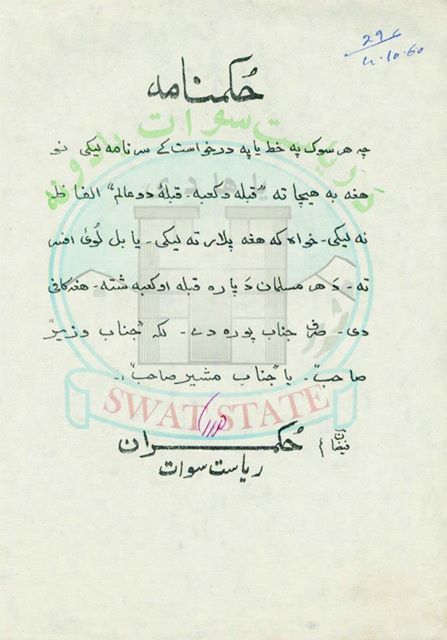 296
11.10.60
حُکمنامه
چه هر سوک په خط یا په درخواست کے سرنامه لیکی نو
هغه به هیچا ته "قبله و کعبه - قبلۀ دو عالم" الفاظ
نه لیکی - خواه که هغه پلار ته لیکی - یا بل لُوئ افسر
ته - دَ هر مسلمان دَ پاره قبله او کعبه شته - هغه کافی
دی - صرف جناب پوره دے - لکه "جناب وزیر
صاحب" - یا "جناب مشیر صاحب" -
SWAT STATE
حُکمران
ریاست سوات